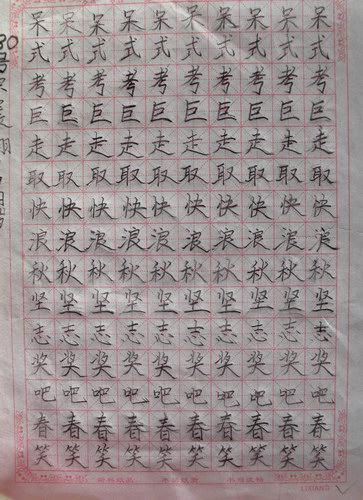 呆呆呆呆呆呆呆呆呆呆
式式式式式式式式式式
考考考考考考考考考考
巨巨巨巨巨巨巨巨巨巨
走走走走走走走走走走
取取取取取取取取取取
快快快快快快快快快快
浪浪浪浪浪浪浪浪浪浪
秋秋秋秋秋秋秋秋秋秋
坚坚坚坚坚坚坚坚坚坚
志志志志志志志志志志
奖奖奖奖奖奖奖奖奖奖
吧吧吧吧吧吧吧吧吧吧
春春春春春春春春春春
笑笑笑笑笑笑笑笑笑笑